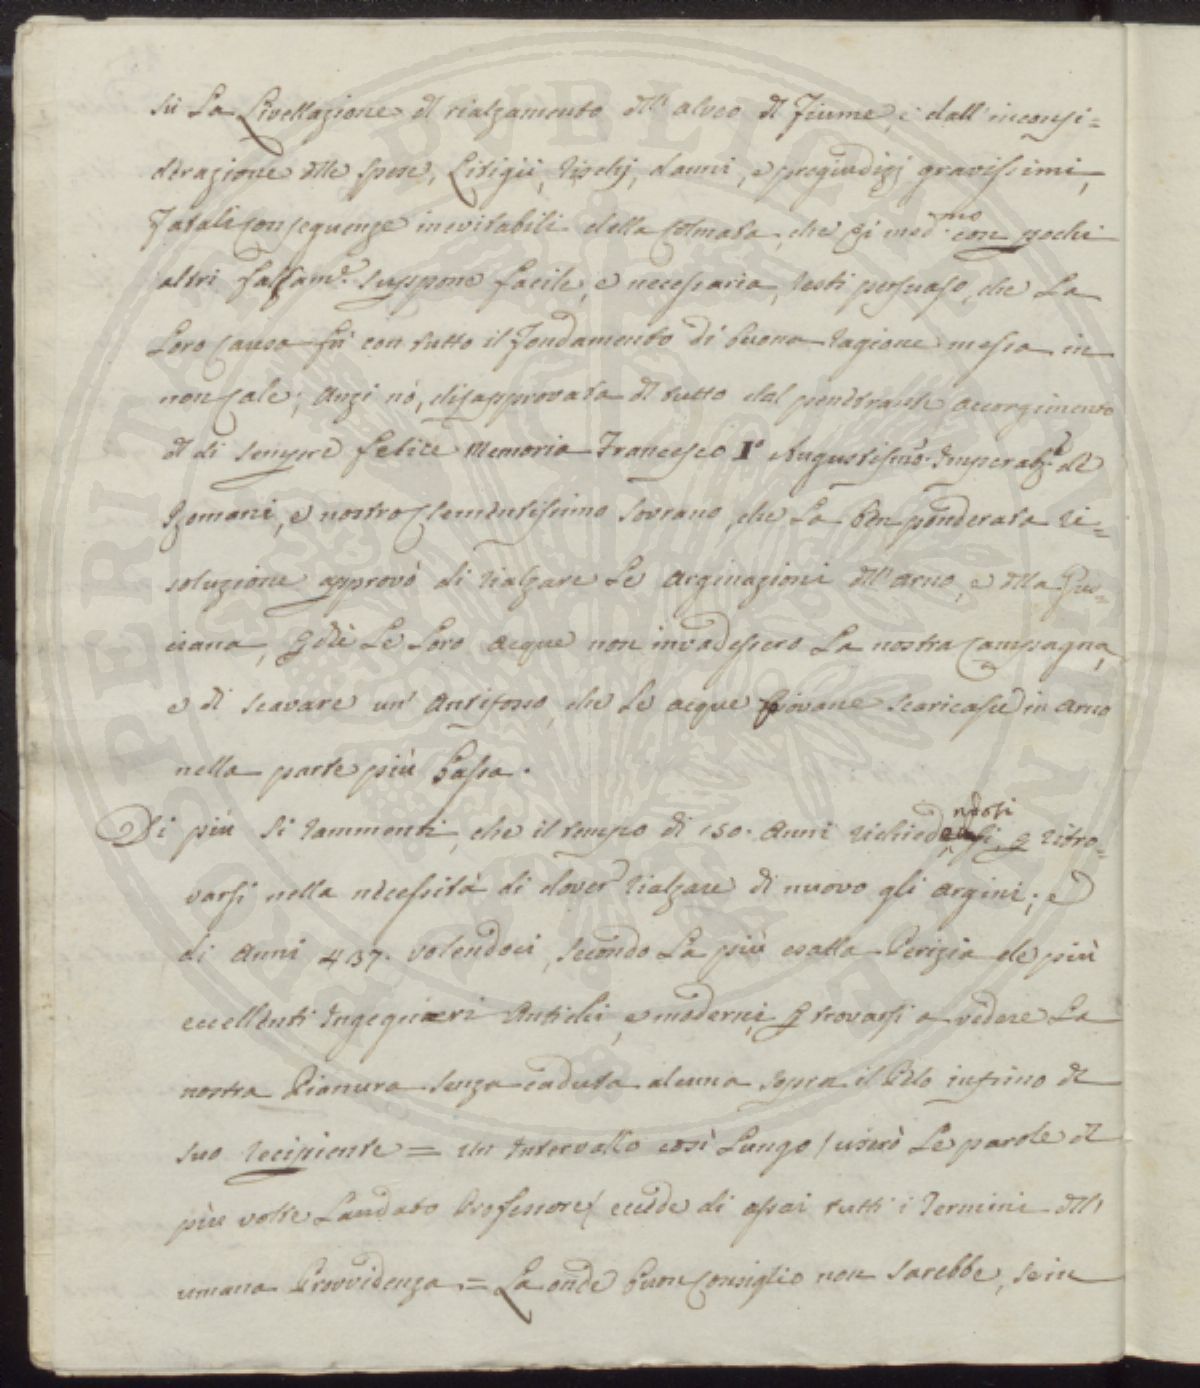 su La Livellazione dl rialzamento dll' alveo dl Fiume, e dall' inconsi=
derazione dlle spese, Litigii, rischj, danni, e pregiudizj gravissimi,
Fatali consequenze inevitabili della Colmata, che ei med.mo con pochi
altri falsam.e suppone facile, e necessaria, resti persuaso, che La
Loro Causa fù con tutto il Fondamento di buona ragione messa in
non cale; Anzi nò, disapprovata dl tutto dal penetrante accorgimento
dl di sempre felice Memoria Francesco I.o Augustismo. Imperat.re de
Romani, e nostro Clementissimo Sovrano, che La ben ponderata ri=
soluzione approvò di rialzare Le Arginazioni dll' Arno, e dlla Gus=
ciana, Le Loro acque non invadessero La nostra Campagna,
e di scavare un' Antifosso, che Le acque Piovane scaricasse in Arno
nella parte più bassa.
Di più Si rammenti, che il tempo di 150. Anni richiedendosi, p ritro=
varsi nella necessità di dover rialzare di nuovo gli Argini; e
di Anni 437. volendoci, secondo La più esatta Perizia de più
eccellenti Ingegnieri Antichi, e moderni, p trovarsi a vedere La
nostra Pianura senza caduta alcuna sopra il Pelo infimo dl
suo recipiente = Un Intervallo così Lungo / userò Le parole dl
più volte Laudato Professore / eccede di assai tutti i Termini dll'
umana Provvidenza = La onde buon Consiglio non sarebbe, se in